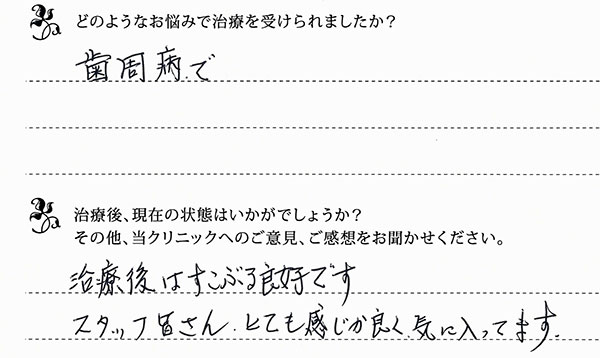 どのようなお悩みで治療を受けられましたか？
歯周病で
治療後、現在の状態はいかがでしょうか？
その他、当クリニックへのご意見、ご感想をお聞かせください。
治療後はすこぶる良好です
スタッフ皆さん、とても感じが良く、気に入ってます。